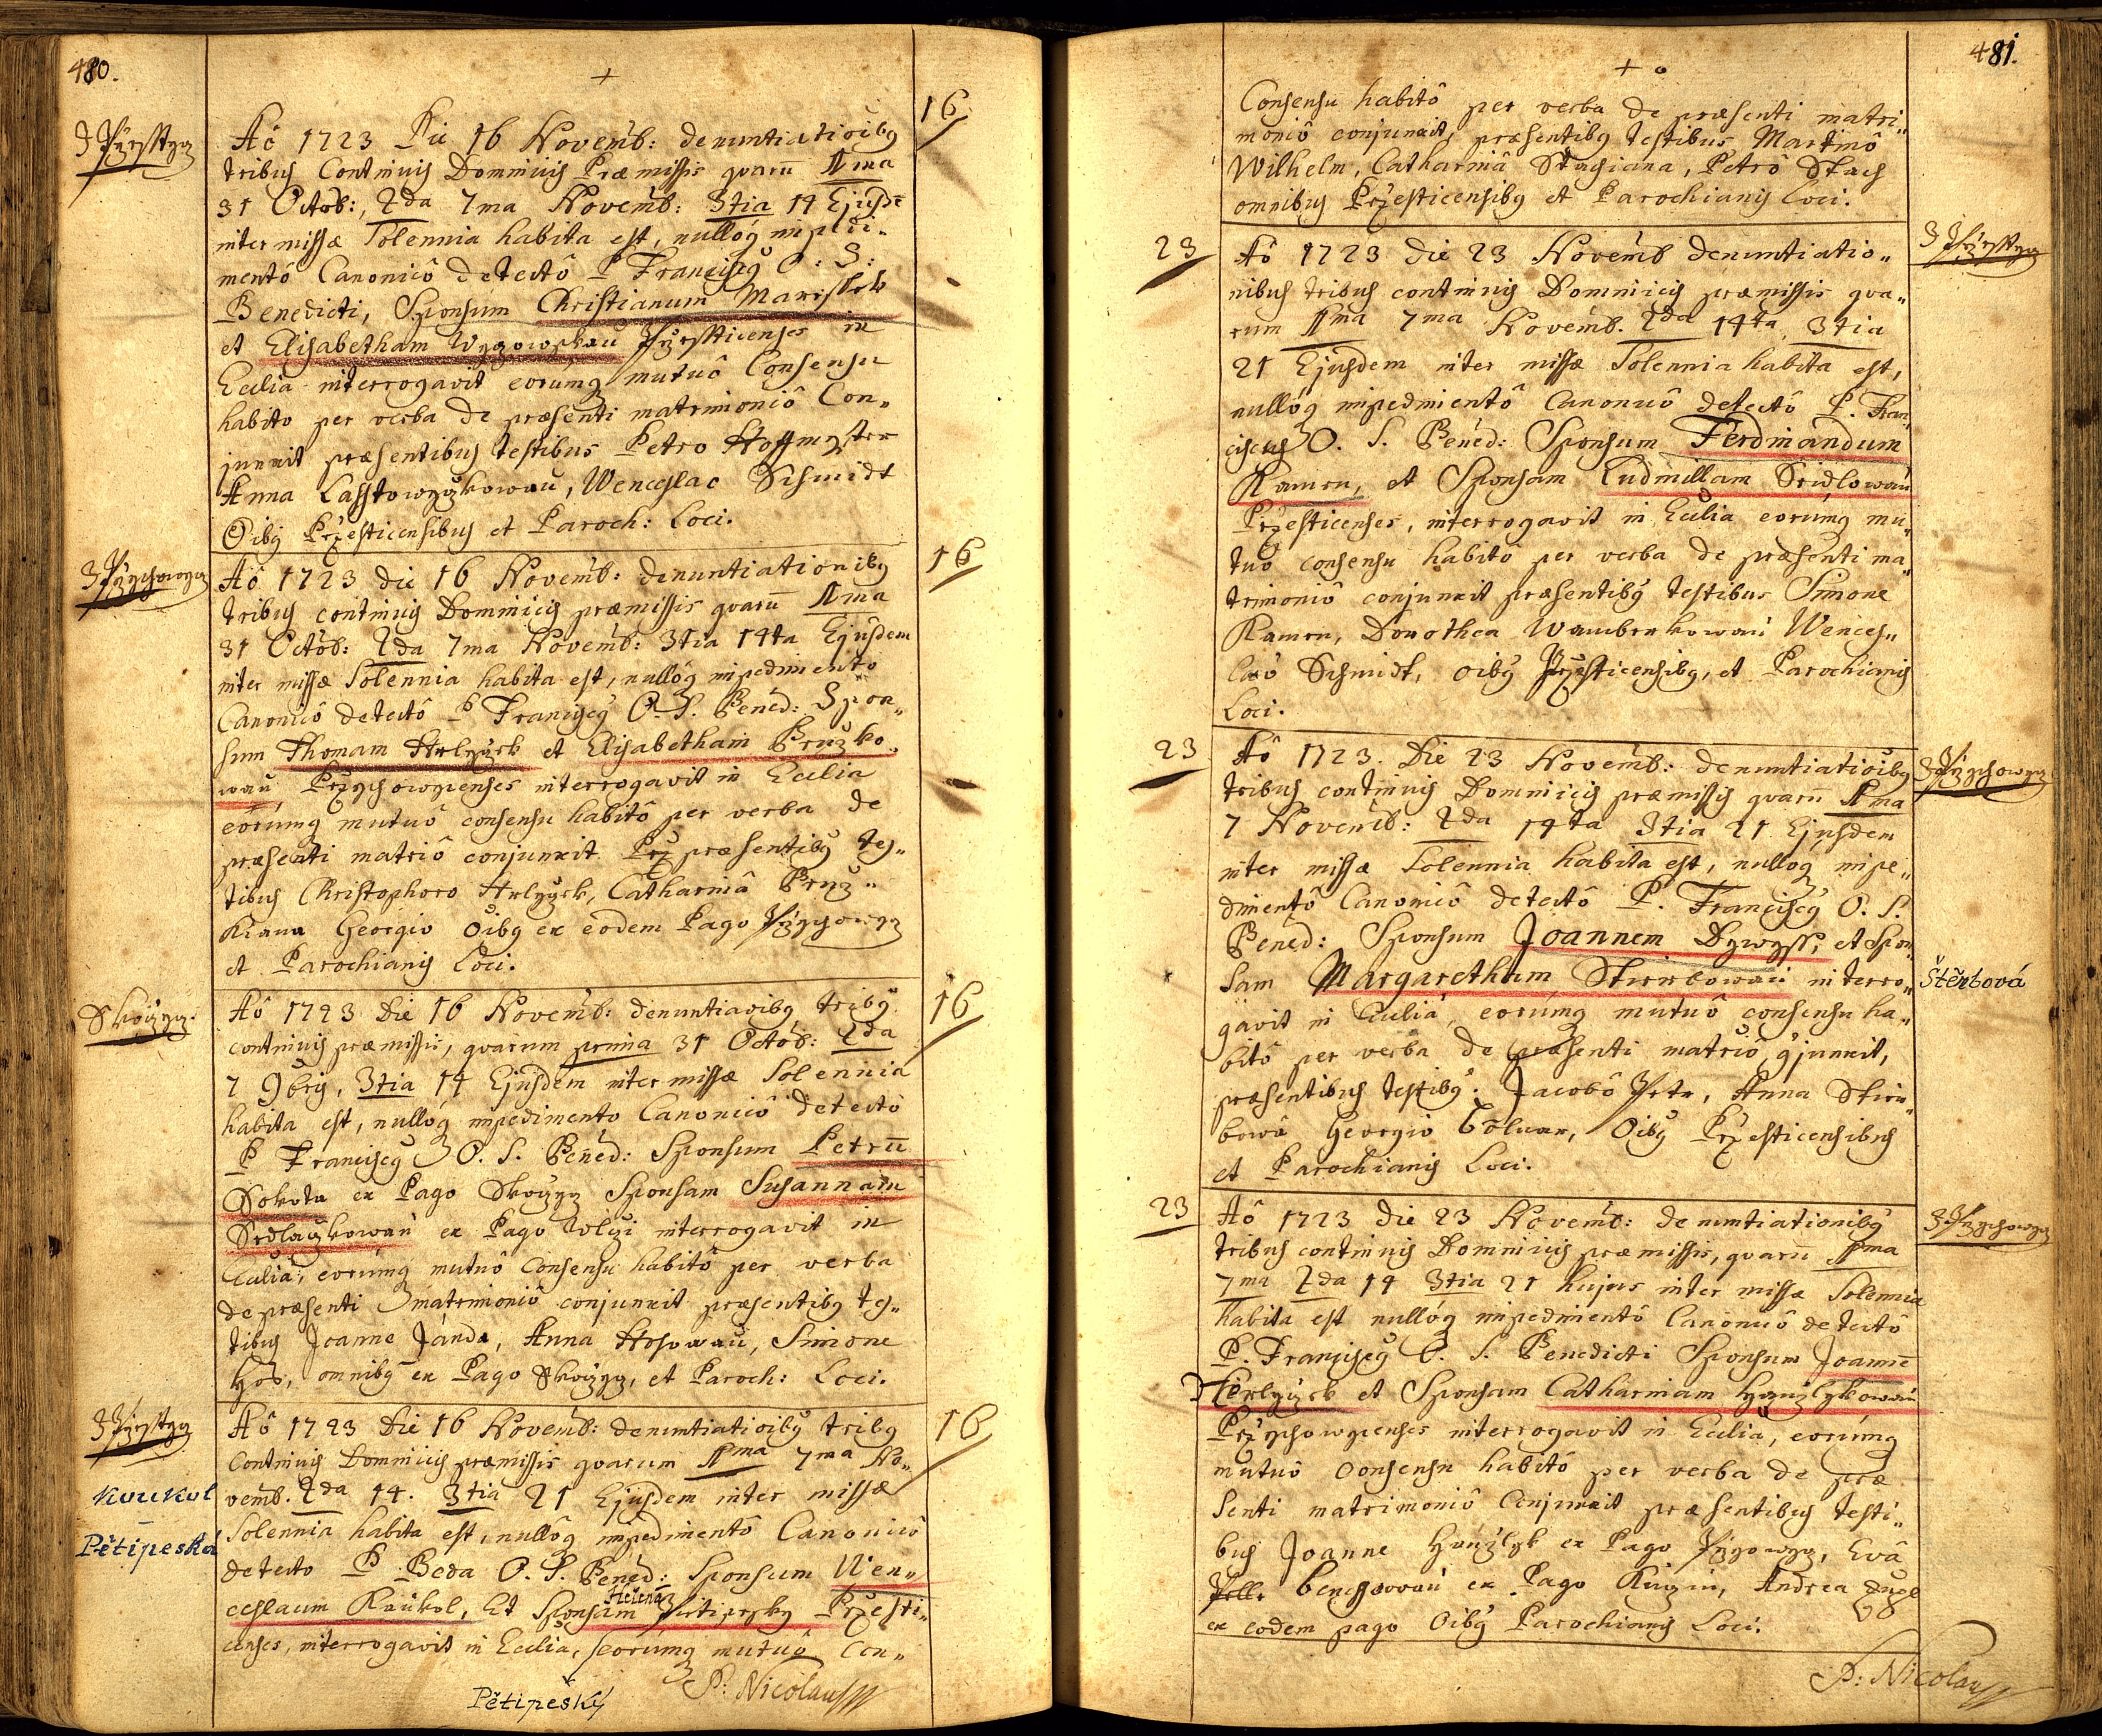 480.
+
16
Z Przesstyz
Aô 1723 Die 16 Novemb: denuntiatioibg
tribus Continuis Dominicis Præmissis quarū 1ma
31 Octob:, 2da 7ma Novemb: 3tia 14 Ejusdē
inter missæ Solennia habita est, nullóq impedi„
mentô Canonicô detectô P Franciscg O: S:
Benedicti, Sponsum Christianum Maressek
et Elisabetham Przessticenses in
Ecclia interrogavit eorúmq mutuô Consensu
habito per verba de præsenti matrimoniô Con„
junxit præsentibus testibus Petro Hoffmyster
Anna Lasstowyczkowau, Wenceslao Schmidt
Oibg Przesticensibus et Paroch: Loci.
16
Aô 1723 die 16 Novemb: denuntiationibg
tribus continuis Dominicis præmissis quarū 1ma
31 Octob: 2da 7ma Novemb: 3tia 14ta Ejusdem
inter missæ Solennia habita est, nullóq impedimento
Canonicô detectô P Franciscg O. S. Bened: Spon„
sum Thomam et Elisabetham Bruzko„
wau Przychowycenses interrogavit in Ecclia
eorúmq mutuô consensu habitô per verba de
præsenti matriô conjunxit præsentibg tes„
tibus Christophoro Catharinâ Bruz„
Kiana Georgio Oibg ex eodem Pago
et Parochianis Loci.
Skoczyz.
16
Aô 1723 Die 16 Novemb: denuntiaoibg tribg
continuis præmissis, quarum prima 31 Octob: 2da
7 9bris, 3tia 14 Ejusdem inter missæ Solennia
habita est, nullóq impedimento Canonicô detectô
P Franciscg O. S. Bened: Sponsum Petrū
Sokola ex Pago Skoczyz Sponsam Susannam
Sedlaczkowau ex Pago Wlczi interrogavit in
Ecclia, eorúmq mutuô Consensu habitô per verba
de præsenti matrimoniô conjunxit præsentibg tes„
tibus Joanne Janda, Anna Hosowau, Simone
Hos, omnibg ex Pago Skoczyz, et Paroch: Loci.
Z Przestyz
16
Aô 1723 Die 16 Novemb: denuntiatioibg tribg
Continuis Dominicis præmissis quarum 1ma 7ma No„
vemb. 2da 14. 3tia 21 Ejusdem inter missæ
Solennia habita est, nullóq impedimentô Canonicô
detecto P Beda O. S. Bened: Sponsum Wen„
ceslaum Kaukol, Et Sponsam Helenā Pietipesky Przesti„
censes, interrogavit in Ecclia, eorúmq mutuô Con„
Koukol
–
Pětipeská
Pětipeský
P: Nicolaus
481.
+
Consensu habitô per verba de præsenti matri„
moniô conjunxit, præsentibg testibus Martinô
Wilhelm, Catharinâ Stachiana, Petrô Stach
omnibus Przesticensibg et Parochianis Loci.
23
Z Przesstyz
Aô 1723 die 23 Novemb denuntiatio„
nibus tribus continuis Dominicis præmissis qua„
rum 1ma 7ma Novemb. 2da 14ta 3tia
21 Ejusdem inter missæ Solennia habita est,
nullóq impedimentô Canonicô detectô P. Fran„
ciscus O. S. Bened: Sponsum Ferdinandum
Kamen, et Sponsam Ludmillam Sedlowau
Przesticenses, interrogavit in Ecclia eorúmq mu„
tuô consensu habitô per verba de præsenti ma„
trimoniô conjunxit præsentibg testibus Simone
Kamen, Dorothea Wambenkowau Wences„
laô Schmidt, oibg Przesticensibg, et Parochianis
Loci.
23
Aô 1723. Die 23 Novemb: denuntiatioibg
tribus continuis Dominicis præmissis quarū 1ma
7 Novemb: 2da 14ta 3tia 21 Ejusdem
inter missæ Solennia habita est, nullóq impe„
dimentô Canonicô detectô P. Franciscg O. S.
Bened: Sponsum Joannem Dywyss, et Spon„
sam Margaretham Sterbowau interro„
gavit in Ecclia, eorúmq mutuô consensu ha„
bitô per verba de præsenti matriô, cjunxit,
præsentibus testibg: Jacobô Petr, Anna Stier„
bowa Georgio Oibg Przesticensibus
et Parochianis Loci.
Štěrbová
23
Aô 1723 die 23 Novemb: denuntiationibg
tribus continuis Dominicis præmissis, quarū 1ma
7ma 2da 14 3tia 21 hujus inter missæ Solennia
habita est nullóq impedimentô Canonicô detectô
P. Franciscg O. S. Benedicti Sponsum Joannē
et Sponsam Catharinam Hynzlykowau
Przychowycenses interrogavit in Ecclia, eorúmq
mutuô Consensu habitô per verba de præ
senti matrimoniô Conjunxit præsentibus testi„
bus Joanne Hynzlyk ex Pago Evâ
Benessowau ex Pago Andrea
ex eodem pago Oibg Parochianis Loci.
P: Nicolaus